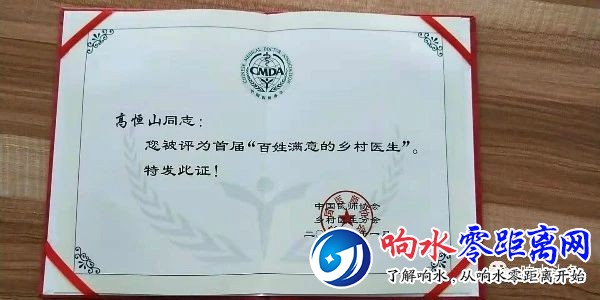 CHINESE MEDICAL DOCTOR ASSOCIATION
CMDA
中国医师协会
高恒山同志：
您被评为首届“百姓满意的乡村医生”。
特发此证！
中国医师协会
乡村医生分会
响水零距离网
了解响水，从响水零距离开始